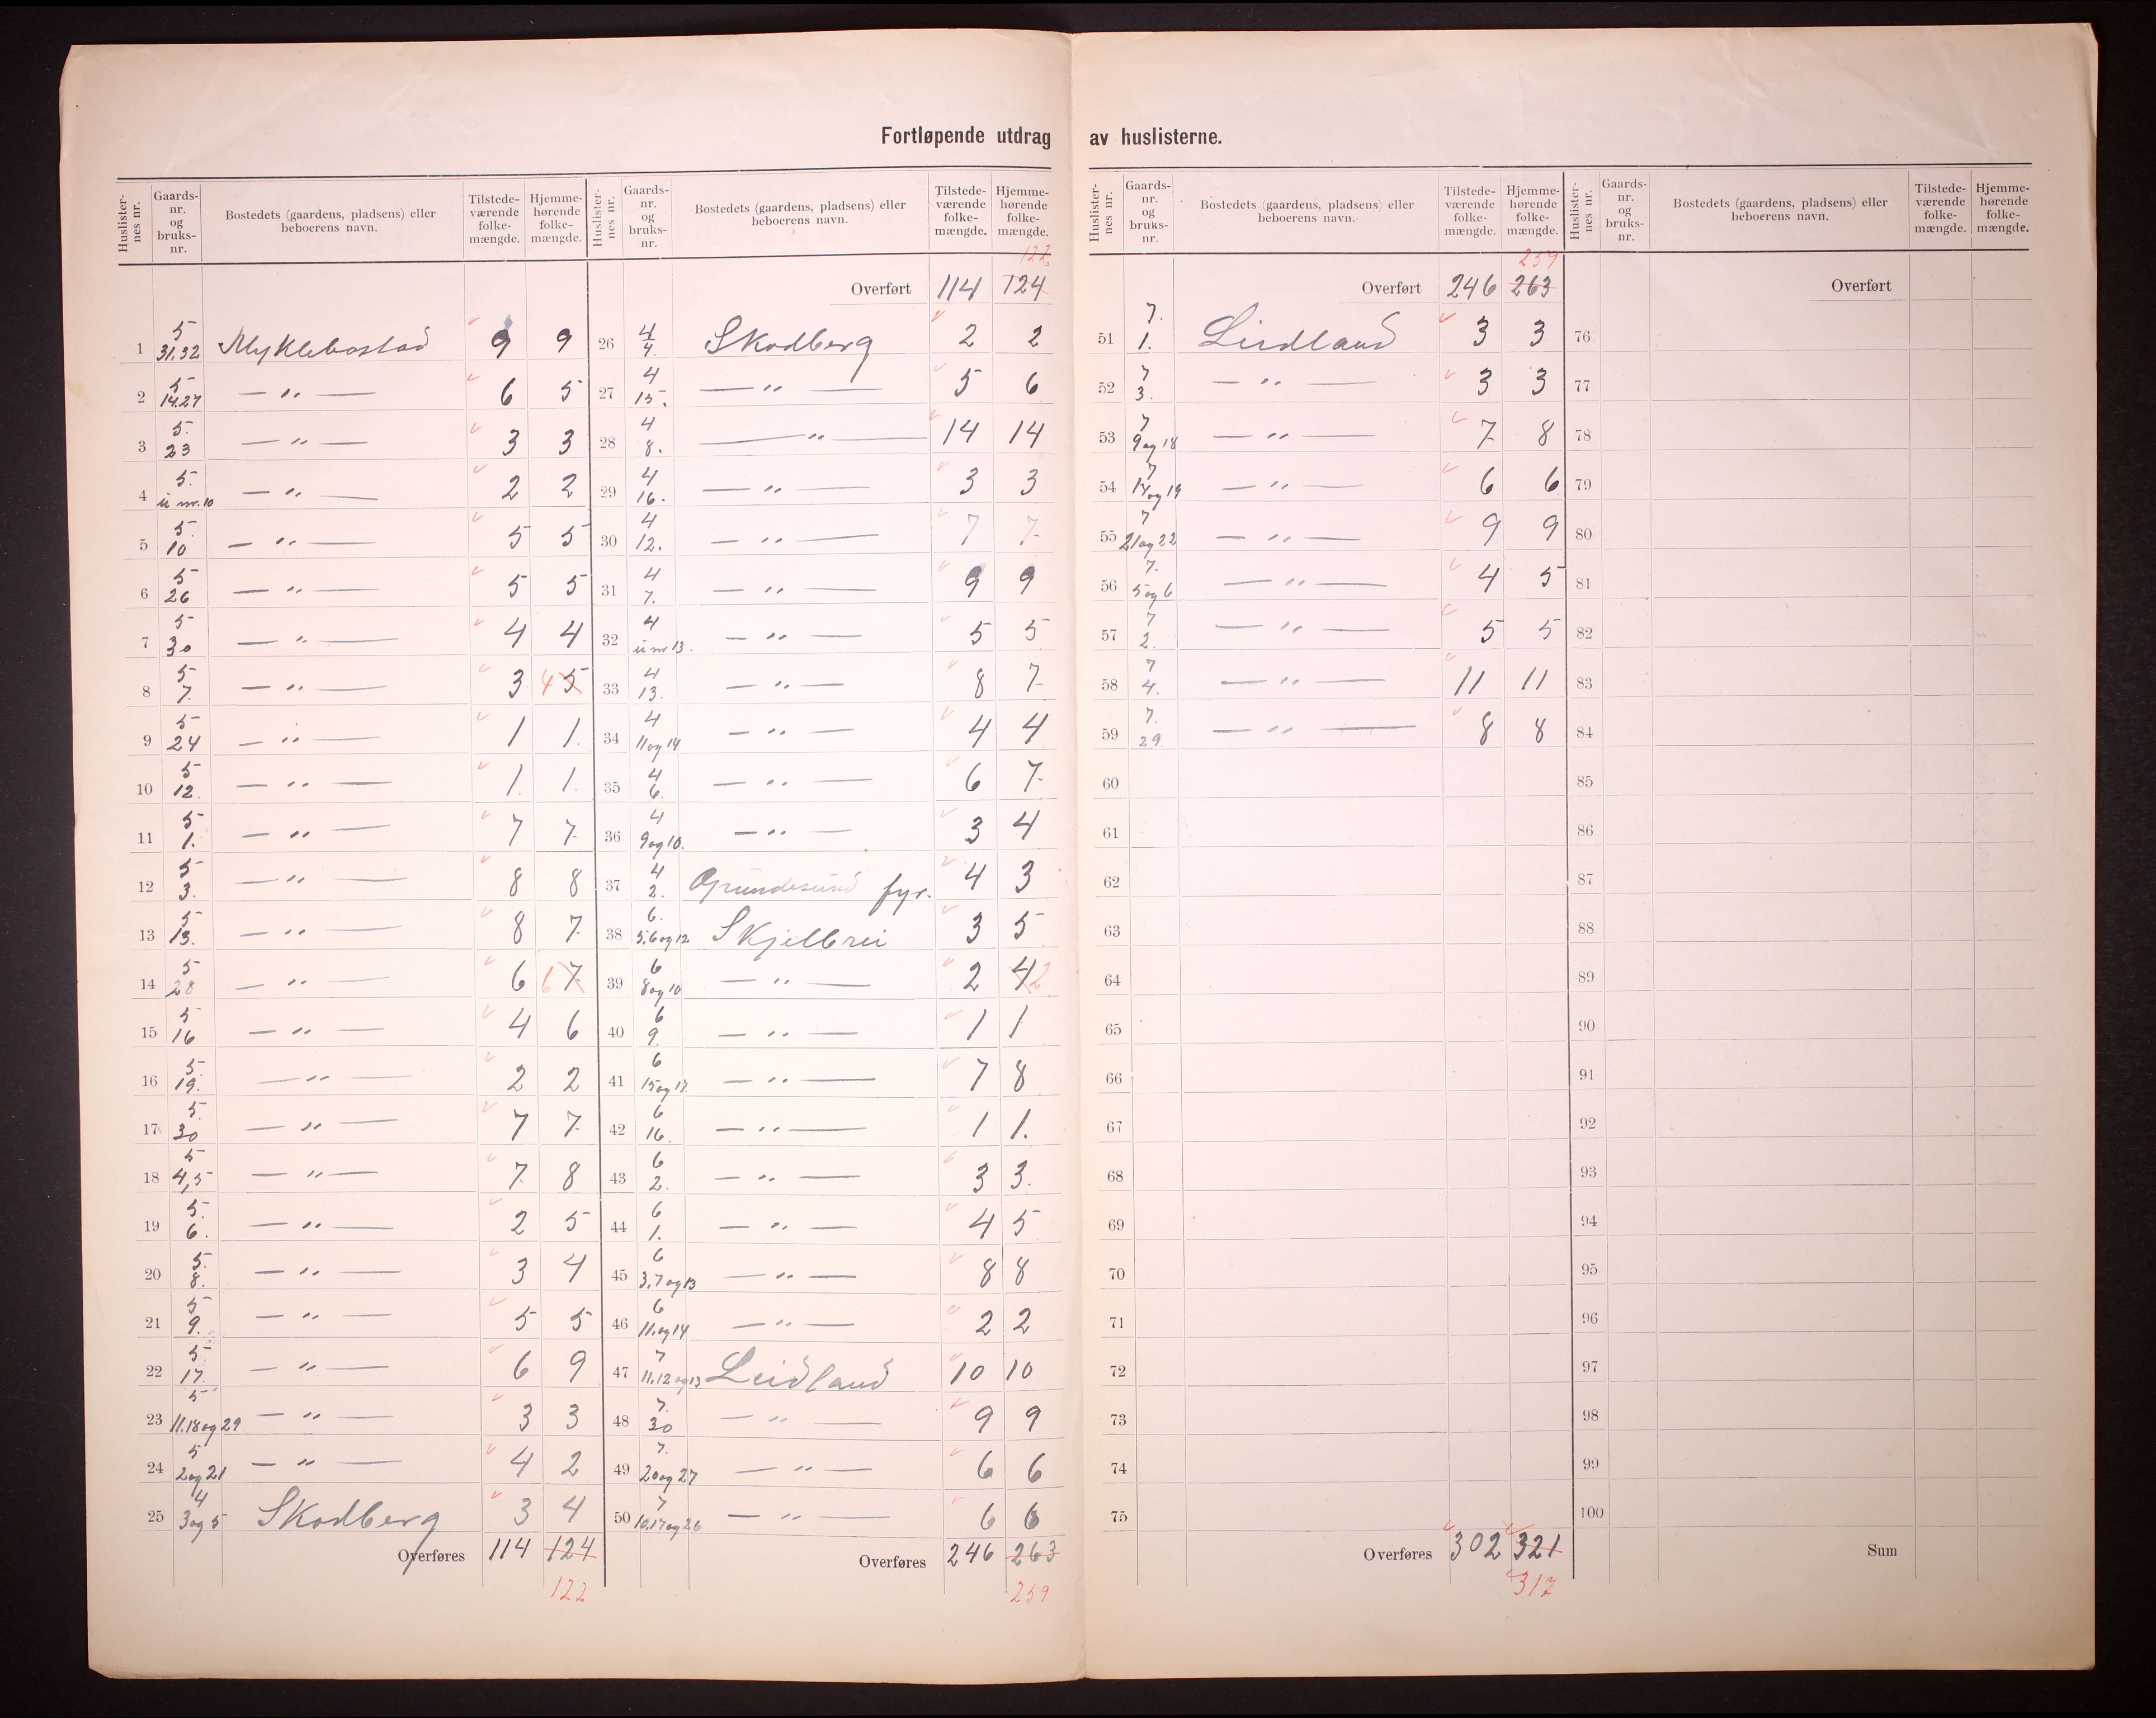 Fortløpende utdrag av huslisterne.
Huslisternes nr. | Gaards-nr. og bruks-nr. | Bostedets (gaardens, pladsens) eller beboerens navn. | Tilstede-værende folke-mængde. | Hjemme-hørende folke-mængde.
1 | 5 31.32 | Myklebostad | 9 | 9
2 | 5 14.27 | — " — | 6 | 5
3 | 5. 23 | — " — | 3 | 3
4 | 5. u nr. 10 | — " — | 2 | 2
5 | 5. 10 | — " — | 5 | 5
6 | 5 26 | — " — | 5 | 5
7 | 5 30 | — " — | 4 | 4
8 | 5 7. | — " — | 3 | 4 5
9 | 5 24 | — " — | 1 | 1.
10 | 5 12. | — " — | 1. | 1.
11 | 5 1. | — " — | 7 | 7.
12 | 5 3. | — " — | 8 | 8
13 | 5 13. | — " — | 8 | 7
14 | 5 28 | — " — | 6 | 6 7
15 | 5 16 | — " — | 4 | 6
16 | 5. 19. | — " — | 2 | 2
17 | 5. 30 | — " — | 7 | 7.
18 | 5 4,5 | — " — | 7. | 8
19 | 5. 6. | — " — | 2 | 5
20 | 5. 8. | — " — | 3 | 4
21 | 5 9. | — " — | 5 | 5
22 | 5. 17. | — " — | 6 | 9
23 | 5 11.18 og 29 | — " — | 3 | 3
24 | 5 2 og 21 | — " — | 4 | 2
25 | 4 3 og 5 | Skodberg | 3 | 4
Overføres | 114 | 124
122
Huslisternes nr. | Gaards-nr. og bruks-nr. | Bostedets (gaardens, pladsens) eller beboerens navn. | Tilstede-værende folke-mængde. | Hjemme-hørende folke-mængde.
122
Overført | 114 | 124
26 | 4 4. | Skodberg | 2 | 2
27 | 4 15. | — " — | 5 | 6
28 | 4 8. | — " — | 14 | 14
29 | 4 16. | — " — | 3 | 3
30 | 4 12. | — " — | 7 | 7.
31 | 4 7. | — " — | 9 | 9
32 | 4 u nr 13. | — " — | 5 | 5
33 | 4 13. | — " — | 8 | 7
34 | 4 11 og 14 | — " — | 4 | 4
35 | 4 6. | — " — | 6 | 7.
36 | 4 9 og 10. | — " — | 3 | 4
37 | 4 2. | Grundesund fyr. | 4 | 3
38 | 6. 5,6 og 12 | Skjelbrei | 3 | 5
39 | 6 8 og 10 | — " — | 2 | 4 2
40 | 6 9. | — " — | 1 | 1
41 | 6 15 og 17. | — " — | 7 | 8
42 | 6 16. | — " — | 1 | 1.
43 | 6 2. | — " — | 3 | 3.
44 | 6 1. | — " — | 4 | 5
45 | 6 3,7 og 13 | — " — | 8 | 8
46 | 6 11. og 14 | — " — | 2 | 2
47 | 7 11.12 og 13 | Leidland | 10 | 10
48 | 7. 30 | — " — | 9 | 9
49 | 7. 20 og 27 | — " — | 6 | 6
50 | 7 10.17 og 26 | — " — | 6 | 6
Overføres | 246 | 263
259
Huslisternes nr. | Gaards-nr. og bruks-nr. | Bostedets (gaardens, pladsens) eller beboerens navn. | Tilstede-værende folke-mængde. | Hjemme-hørende folke-mængde.
259
Overført | 246 | 263
51 | 7. 1. | Leidland | 3 | 3
52 | 7 3. | — " — | 3 | 3
53 | 7 9 og 18 | — " — | 7 | 8
54 | 7 14 og 19 | — " — | 6 | 6
55 | 7 21 og 22 | — " — | 9 | 9
56 | 7. 5 og 6 | — " — | 4 | 5
57 | 7 2. | — " — | 5 | 5
58 | 7 4. | — " — | 11 | 11
59 | 7. 29. | — " — | 8 | 8
60
61
62
63
64
65
66
67
68
69
70
71
72
73
74
75
Overføres | 302 | 321
317
Huslisternes nr. | Gaards-nr. og bruks-nr. | Bostedets (gaardens, pladsens) eller beboerens navn. | Tilstede-værende folke-mængde. | Hjemme-hørende folke-mængde.
Overført
76
77
78
79
80
81
82
83
84
85
86
87
88
89
90
91
92
93
94
95
96
97
98
99
100
Sum